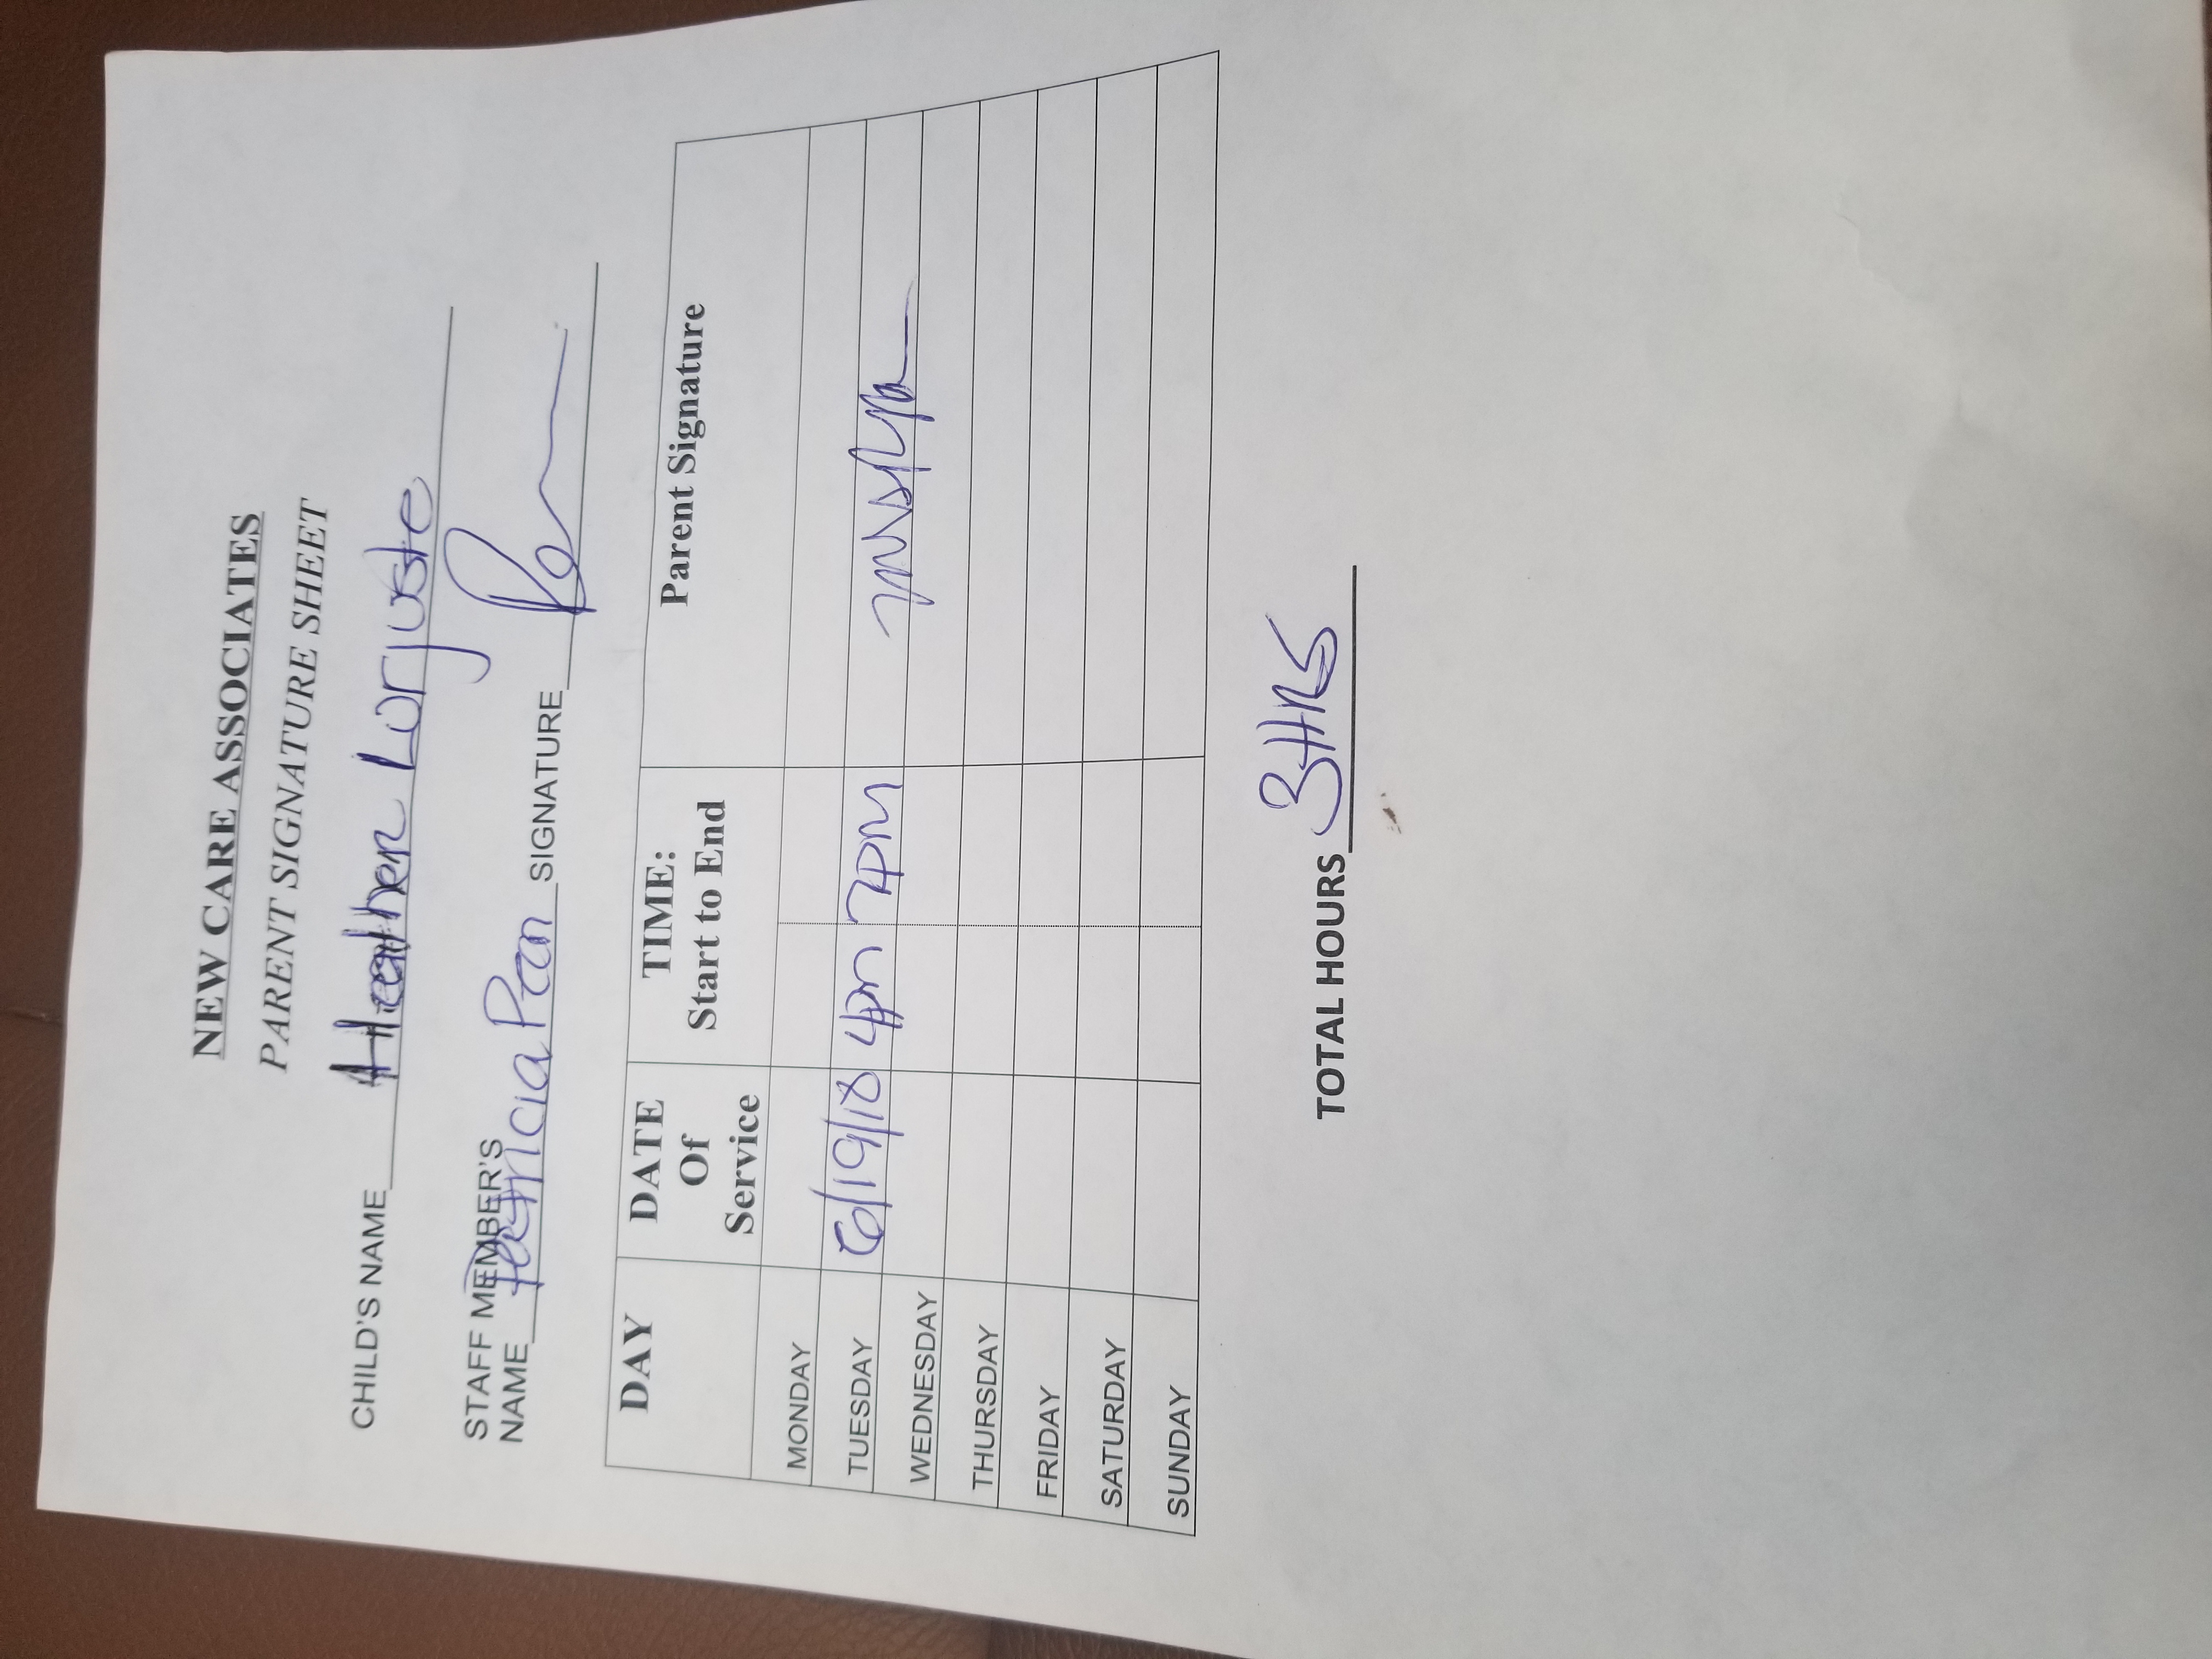 NEW CARE ASSOCIATES
PARENT SIGNATURE SHEET
CHILD'S NAME Heather Lorjuste
STAFF MEMBER'S
NAME Patricia Pean SIGNATURE
DAY DATE Of Service TIME: Start to End Parent Signature
MONDAY
TUESDAY 6/19/18 4pm 7PM
WEDNESDAY
THURSDAY
FRIDAY
SATURDAY
SUNDAY
TOTAL HOURS 3HRS